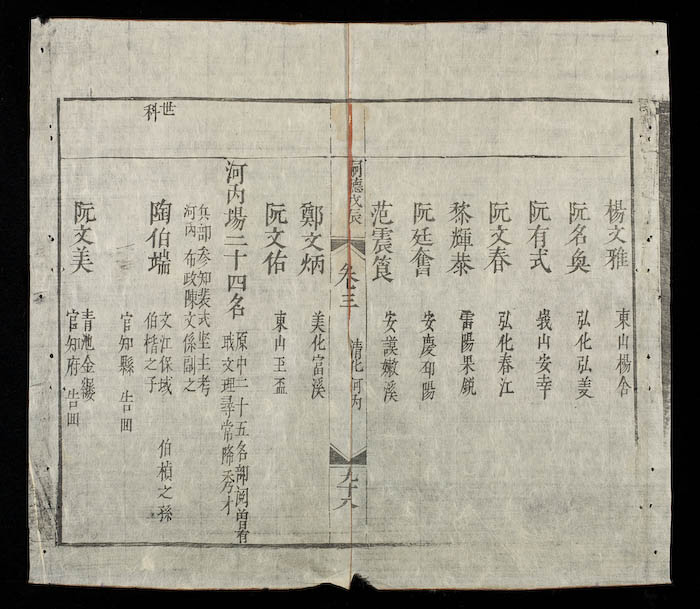 楊文雅 東山楊舍
阮名奐 弘化弘美
阮有式 峩山安幸
阮文春 弘化春江
黎輝恭 雷陽果銳
阮廷奮 安慶 陽
范震 安謨嫩溪
嗣德戊辰 卷三 清化 河內 九十八
鄭文炳 美化富溪
阮文佑 東山玉盃
河內場二十四名 原中二十五名部閱曾有
文理尋常降秀才
兵部參知裴式堅主考
河內布政陳文係副之
世科
陶伯端 文江保域 伯楨之孫
伯 之子
官知縣 告回
阮文美 青池金縷
官知府 告回